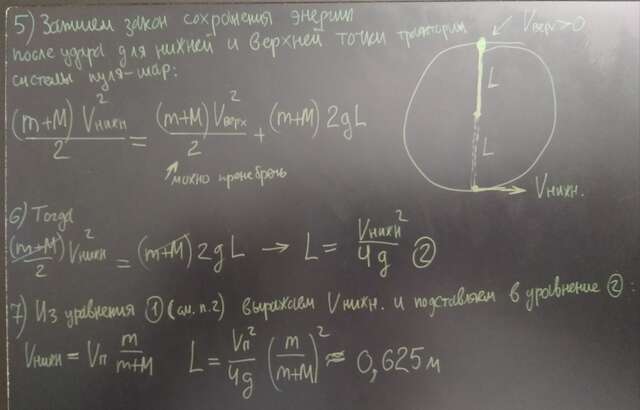 5) Запишем закон сохранения энергии
после удара для нижней и верхней точки траектории
системы пуля-шар:
Vверх>0
(m+M) Vнижн² / 2 = (m+M) Vверх² / 2 + (m+M) 2gL
можно пренебречь
L
L
Vнижн.
6) Тогда
(m+M)/2 Vнижн² = (m+M) 2gL → L = Vнижн² / 4g ②
7) Из уравнения ① (см. п.2) выражаем Vнижн. и подставляем в уравнение ②:
Vнижн = Vп m/(m+M) L = Vп²/4g (m/(m+M))² ≈ 0,625 м